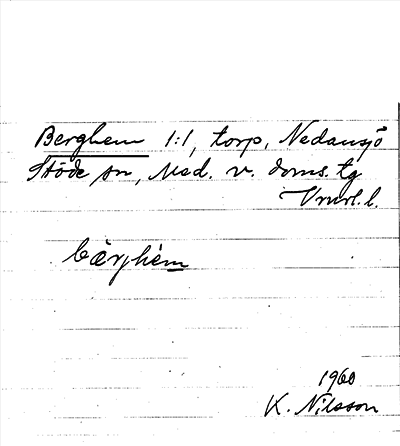 Berghem 1:1, torp, Nedansjö
Stöde sn, Med. v. doms. tg
Vnrl. l.
bærjhèm
1960
K. Nilsson